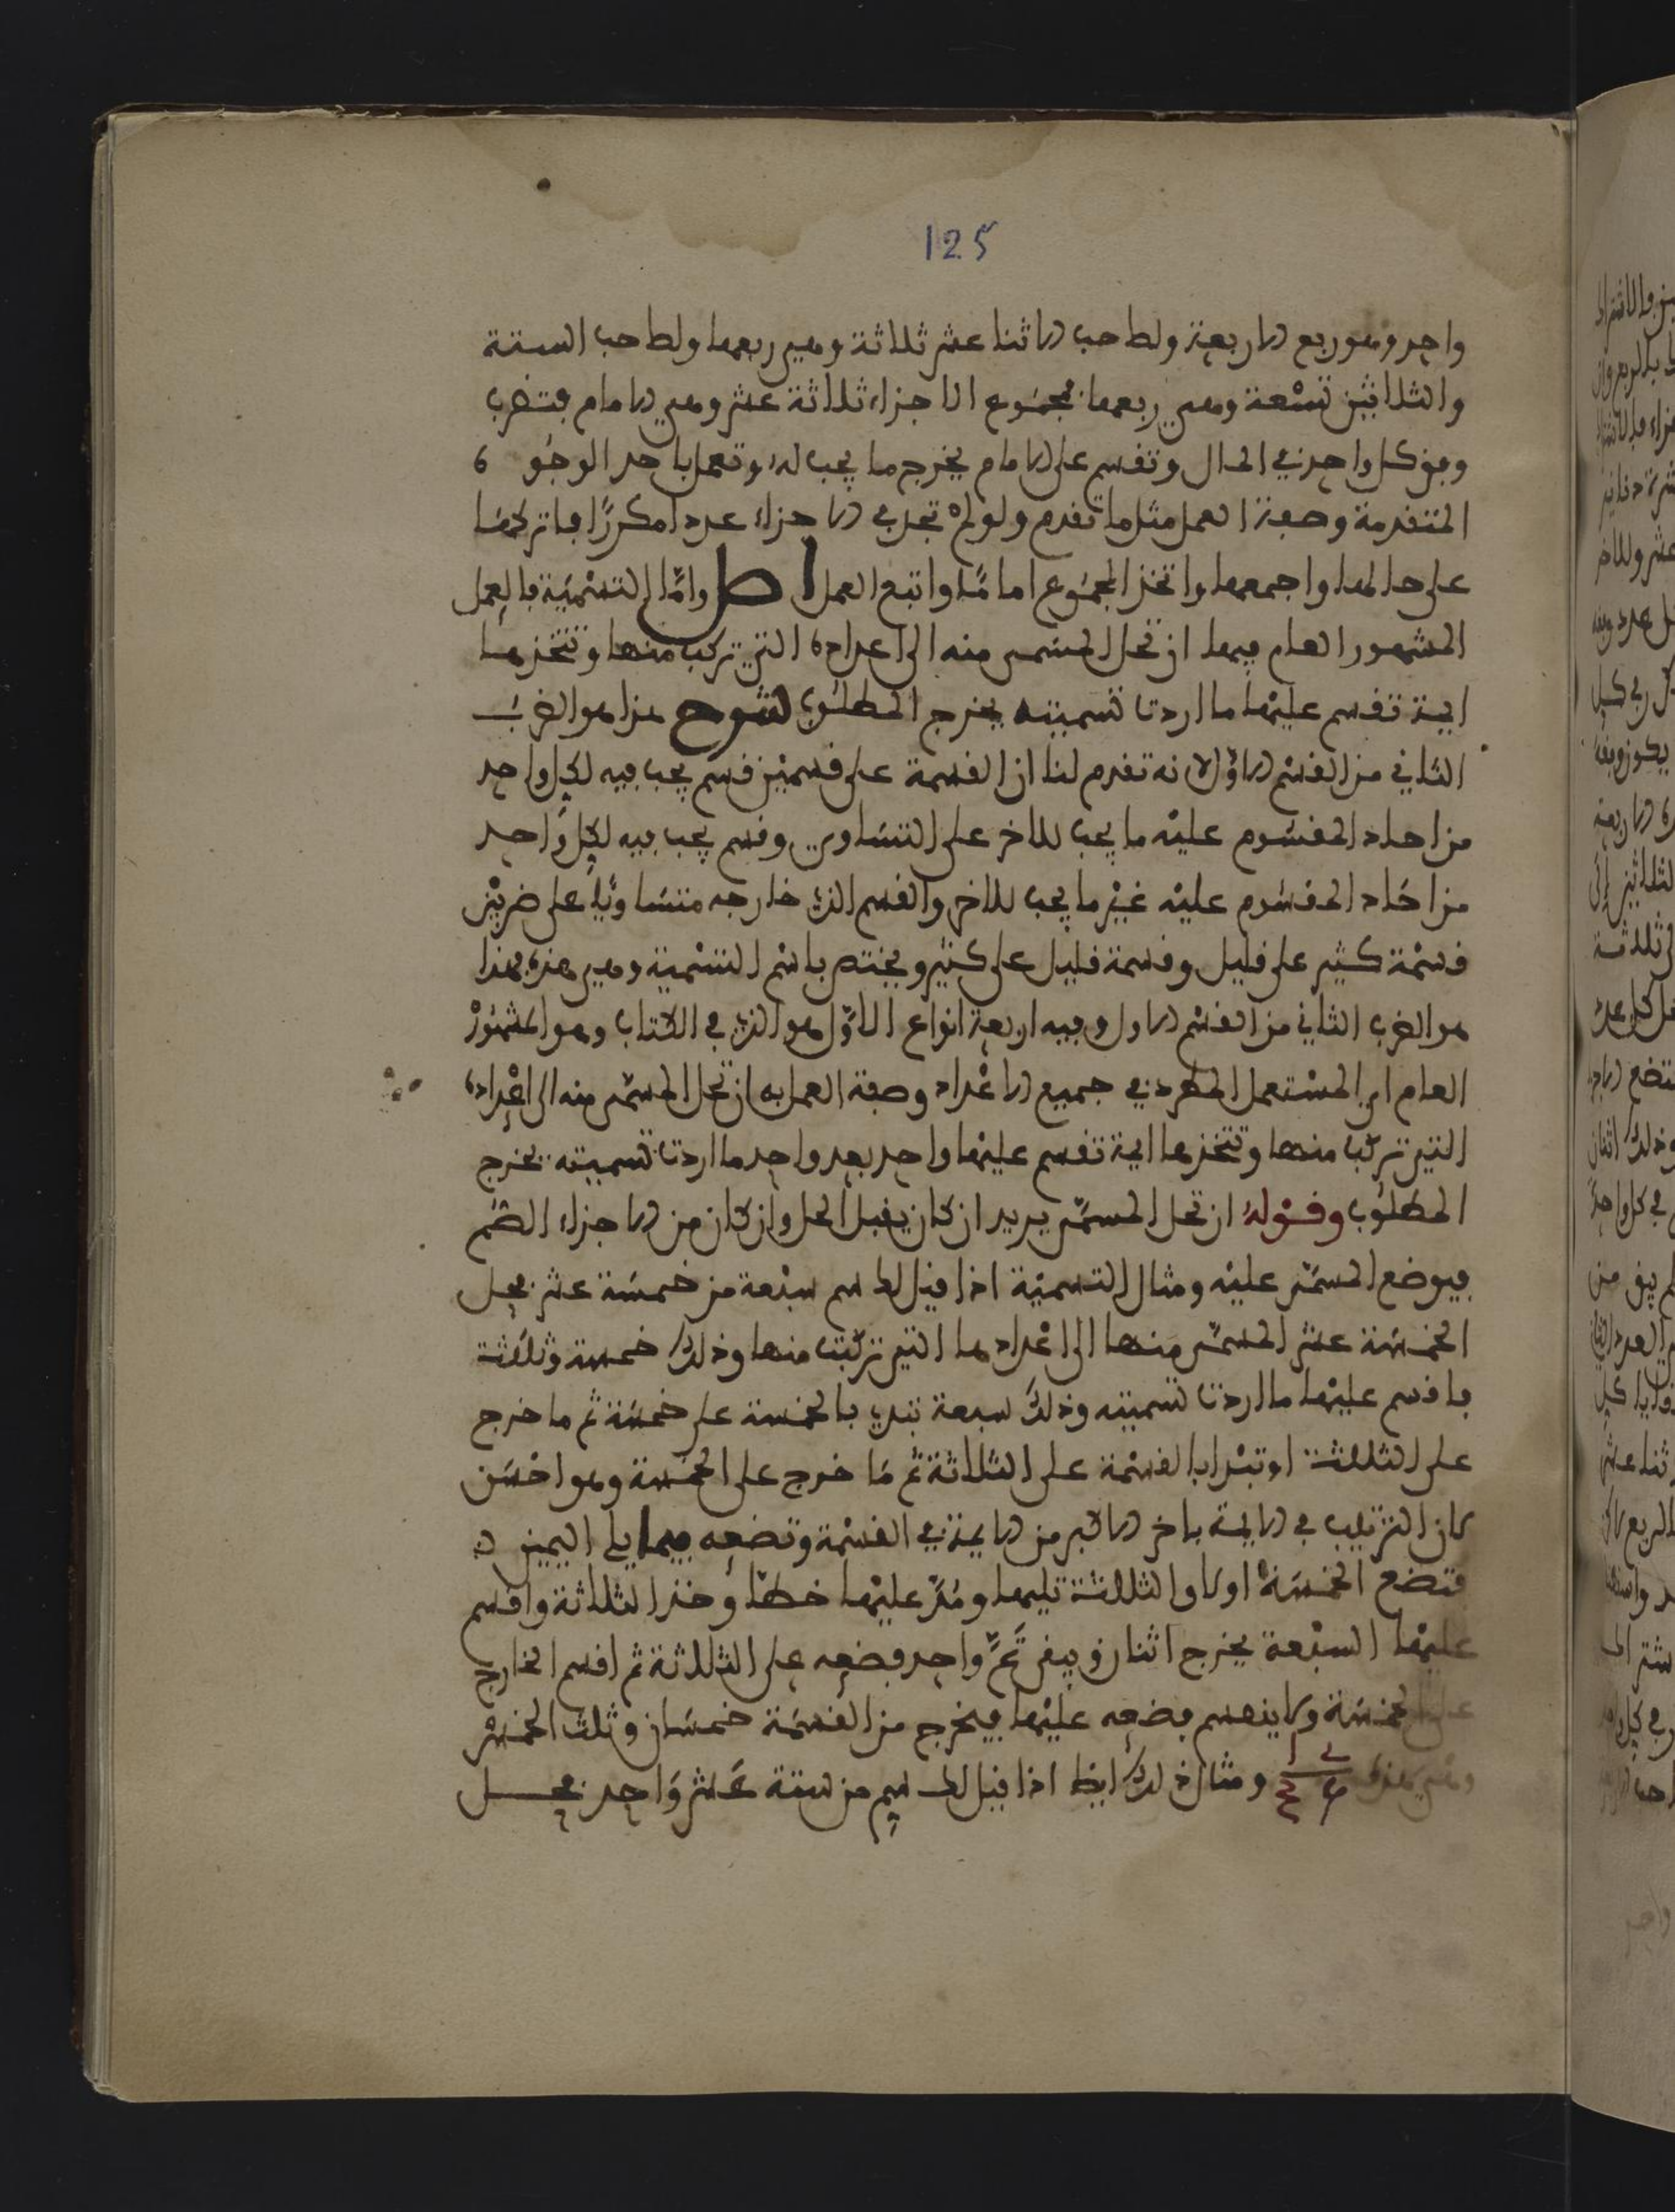 125
واحد وهو ربع الاربعة ولصاحب الاثنا عشر ثلاثة وهي ربعها ولصاحب الستة
والثلاثين تسعة وهي ربعها فمجموع الاجزاء ثلاثة عشر وهي الامام فتضرب
وفق كل واحد في المال وتقسم على الامام يخرج ما يجب له وتعمل باحد الوجوه
المتقدمة وصفة العمل مثل ما تقدم ولو لم تجد في الاجزاء عددا مكررا فاتركها
على حالها واجمعها واتخذ المجموع اماما واتبع العمل ص واما التسمية فالعمل
المشهور العام فيها ان تحل المسمى منه الى اعداده التي تركب منها وتتخذها
ايمة تقسم عليها ما اردت تسميته يخرج المطلوب شرح هذا هو الضرب
الثاني من القسم الاول لانه تقدم لنا ان القسمة على قسمين قسم يجب فيه لكل واحد
من احاد المقسوم عليه ما يجب للاخر على التساوي وقسم يجب فيه لكل واحد
من احاد المقسوم عليه غير ما يجب للاخر والقسم الذي خارجه متساويا على ضربين
قسمة كثير على قليل وقسمة قليل على كثير ويختص باسم التسمية وهي هذه فهذا
هو الضرب الثاني من القسم الاول وفيه اربعة انواع الاول هو الذي في الكتاب وهو المشهور
العام اي المستعمل المطرد في جميع الاعداد وصفة العمل به ان تحل المسمى منه الى اعداده
التي تركب منها وتتخذها ايمة تقسم عليها واحد بعد واحد ما اردت تسميته يخرج
المطلوب وقوله ان تحل المسمى يريد ان كان يقبل الحل وان كان من الاجزاء الصم
فيوضع المسمى عليه ومثال التسمية اذا قيل لك سم سبعة من خمسة عشر فحل
الخمسة عشر المسمى منها الى اعدادها التي تركبت منها وذلك خمسة وثلثة
فاقسم عليها ما اردت تسميته وذلك سبعة تبدي بالخمسة على خمسة ثم ما خرج
على الثلاثة او تبدا بالقسمة على الثلاثة ثم ما خرج على الخمسة وهو احسن
كان الترتيب في الايمة باخر الاكبر من الايمة في القسمة وتضعه مما يلي اليمين
فتضع الخمسة اولا والثلاثة تليها ومد عليها خطا وخذ الثلاثة واقسم
عليها السبعة يخرج اثنان ويبقى ثم واحد فضعه على الثلاثة ثم اقسم الخارج
على الخمسة ولا ينقسم فضعه عليها فيخرج من القسمة خمسان وثلث الخمس
وهي هذه ومثال ذلك ايضا اذا قيل لك سم من ستة عشر واحد فحل